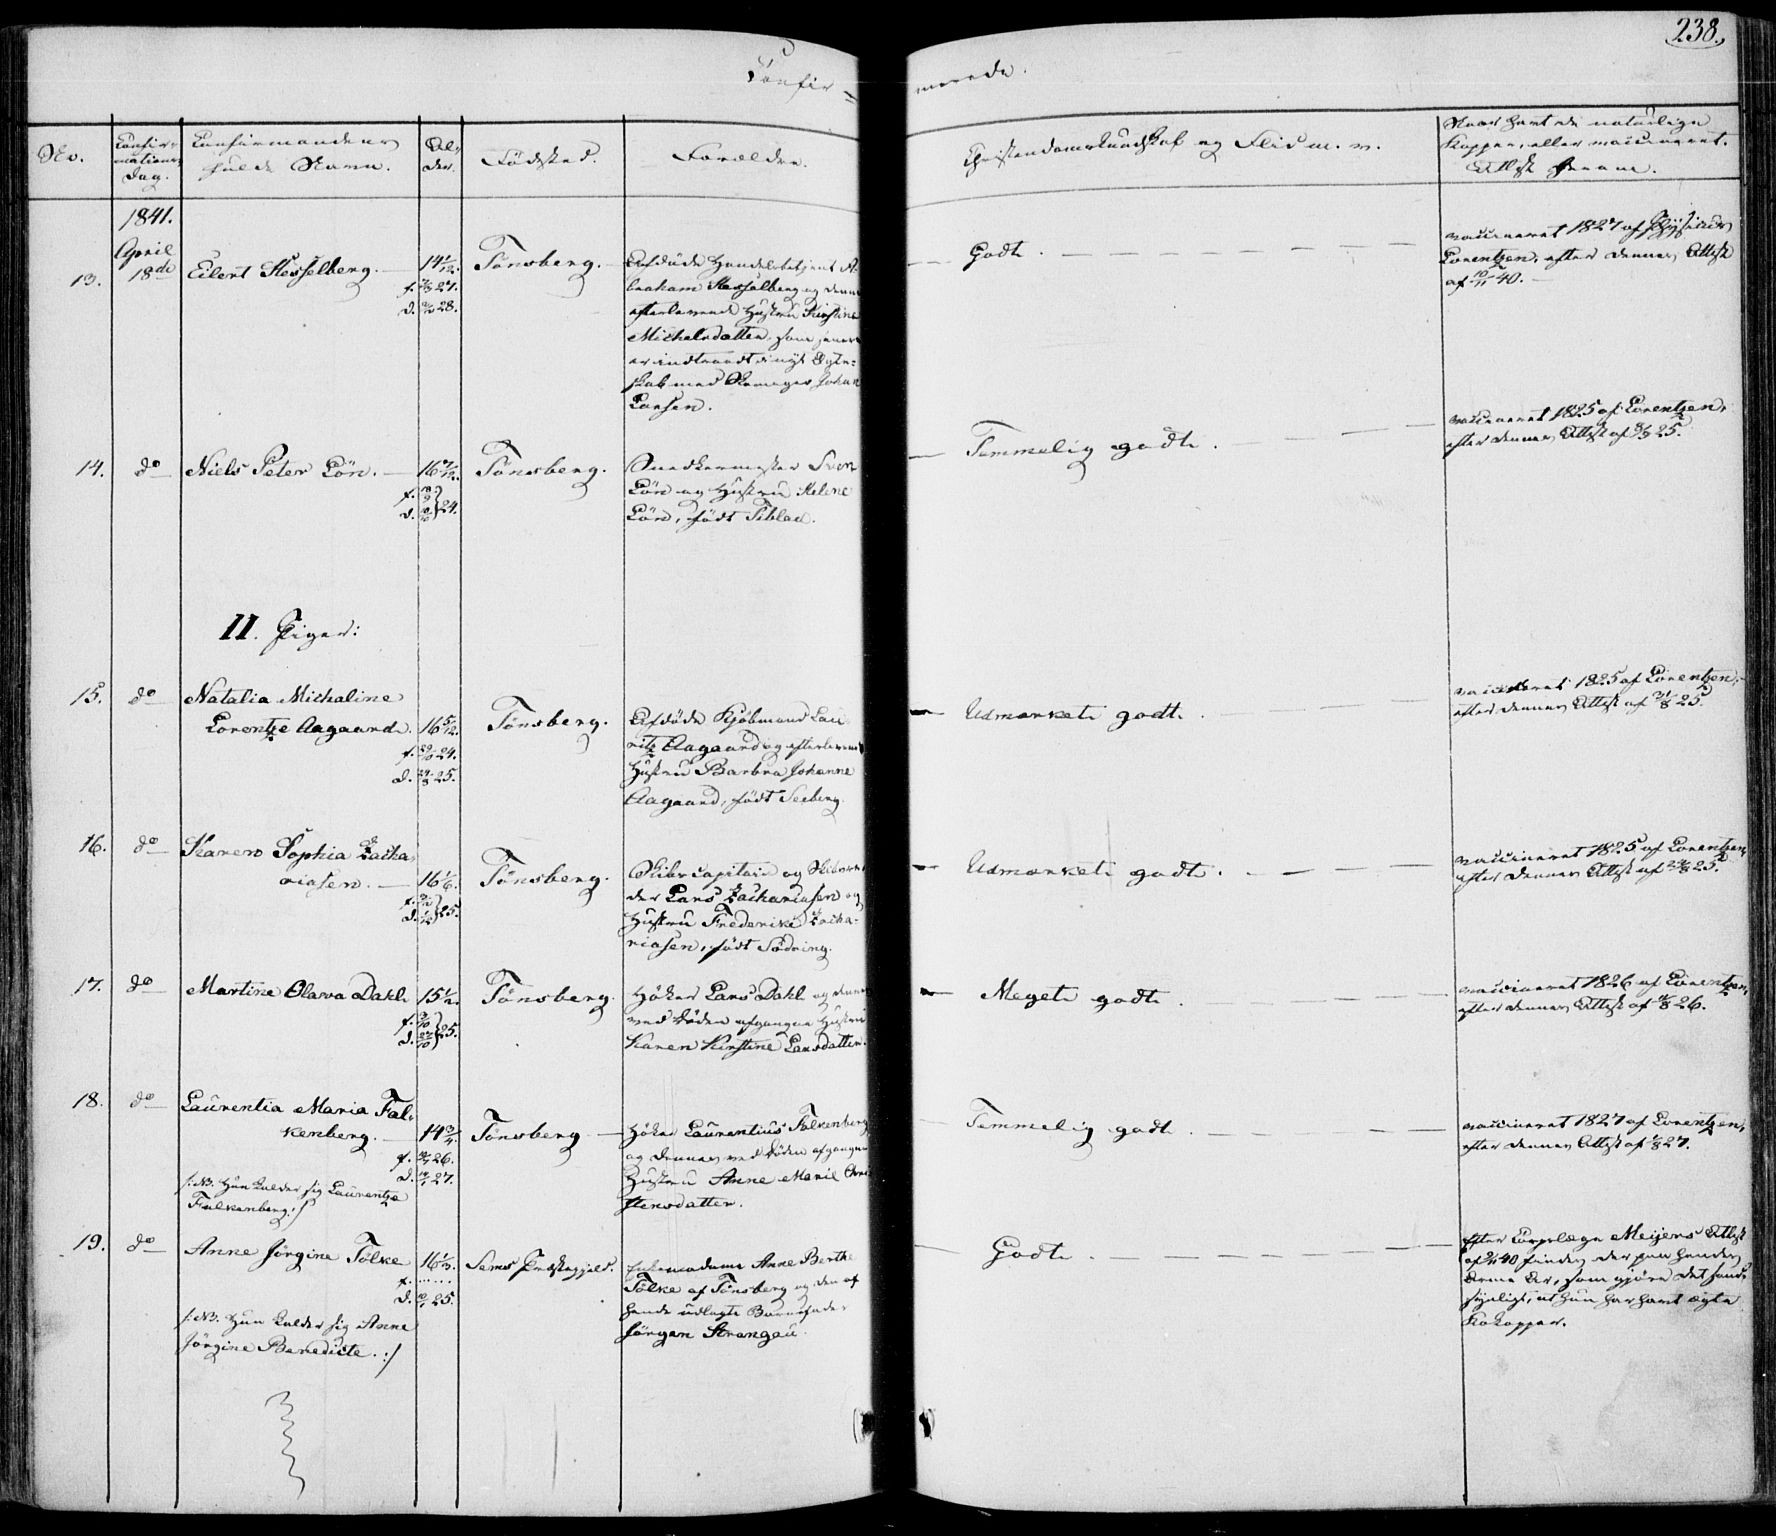 238.
Confir=
merede.
No.
Confir-
mations
Dag.
Confirmandens
fulde Navn.
Al-
der.
Födsted.
Forældre.
Christendomskundskab og Flid m. v.
Naar havt de naturlige
Kopper, eller vaccineret.
Attest herom.
1841.
April
13. 18de Eilert Hesselberg. — 14 1/12. Tönsberg. —
f. 27.
d. 28.
Afdöde Handelsbetjent A-
braham Hesselberg og dennes
efterlevende Hustru Kirstine
Michelsdatter, som senere
er indtraadt i nyt Ægte-
skab med Skomager Johan
Larsen.
Godt.
vaccineret 1827 af Physicus
Lorentzen, efter dennes Attest
af 10/11 40. —
14. do Niels Peter Lön. — 16 7/12. Tönsberg.
f. 18/9
d. 24.
Snedkermester Sven
Lön og Hustru Helene
Lön, födt Siblau.
Temmelig godt.
vaccineret 1825 af Lorentzen,
efter dennes Attest af 25.
II. Piger:
15. do Natalia Michaline
Lorentze Aagaard. 16 5/12. Tönsberg.
f. 24.
d. 25.
Afdöde Kjöbmand Lau-
ritz Aagaard og efterlevende
Hustru Barbra Johanne
Aagaard, födt Seeberg.
Udmærket godt.
vaccineret 1825 af Lorentzen,
efter dennes Attest af 21/8 25.
16. do Karen Sophia Zacha-
riasen. — 16 1/6. Tönsberg.
f.
d. 25.
Skibscapitain og Skibsrhe-
der Lars Zachariasen og
Hustru Frederikke Zacha-
riasen, födt Södring.
Udmærket godt.
vaccineret 1825 af Lorentzen,
efter dennes Attest af 25.
17. do Martine Olava Dahl. 15 1/2. Tönsberg.
f.
d. 25.
Höker Lars Dahl og dennes
ved Döden afgangne Hustru
Karen Kirstine Larsdatter.
Meget godt.
vaccineret 1826 af Lorentzen,
efter dennes Attest af 26.
18. do Laurentia Maria Fal-
kenberg. — 14 3/4. Tönsberg —
f. 26.
d. 27.
/: NB. Hun kalder sig Laurentze
Falkenberg. :/
Höker Laurentius Falkenberg
og dennes ved Döden afgangne
Hustru Anne Marie Chri-
stensdatter.
Temmelig godt.
vaccineret 1827 af Lorentzen,
efter dennes Attest af 27.
19. do Anne Jörgine Tölke 16 1/3. Sems Præstegjeld.
f. ......
d. 25.
/: NB. Hun kalder sig Anne
Jörgine Benedicte. :/
Enkemadame Anne Berthe
Tölke af Tönsberg og den af
hende udlagte Barnefader
Jörgen Strangau.
Godt.
Efter Corpslæge Meijers Attest
af 40 findes der paa hendes
Arme Ar, som gjöre det sand-
synligt, at hun har havt ægte
Kokopper.